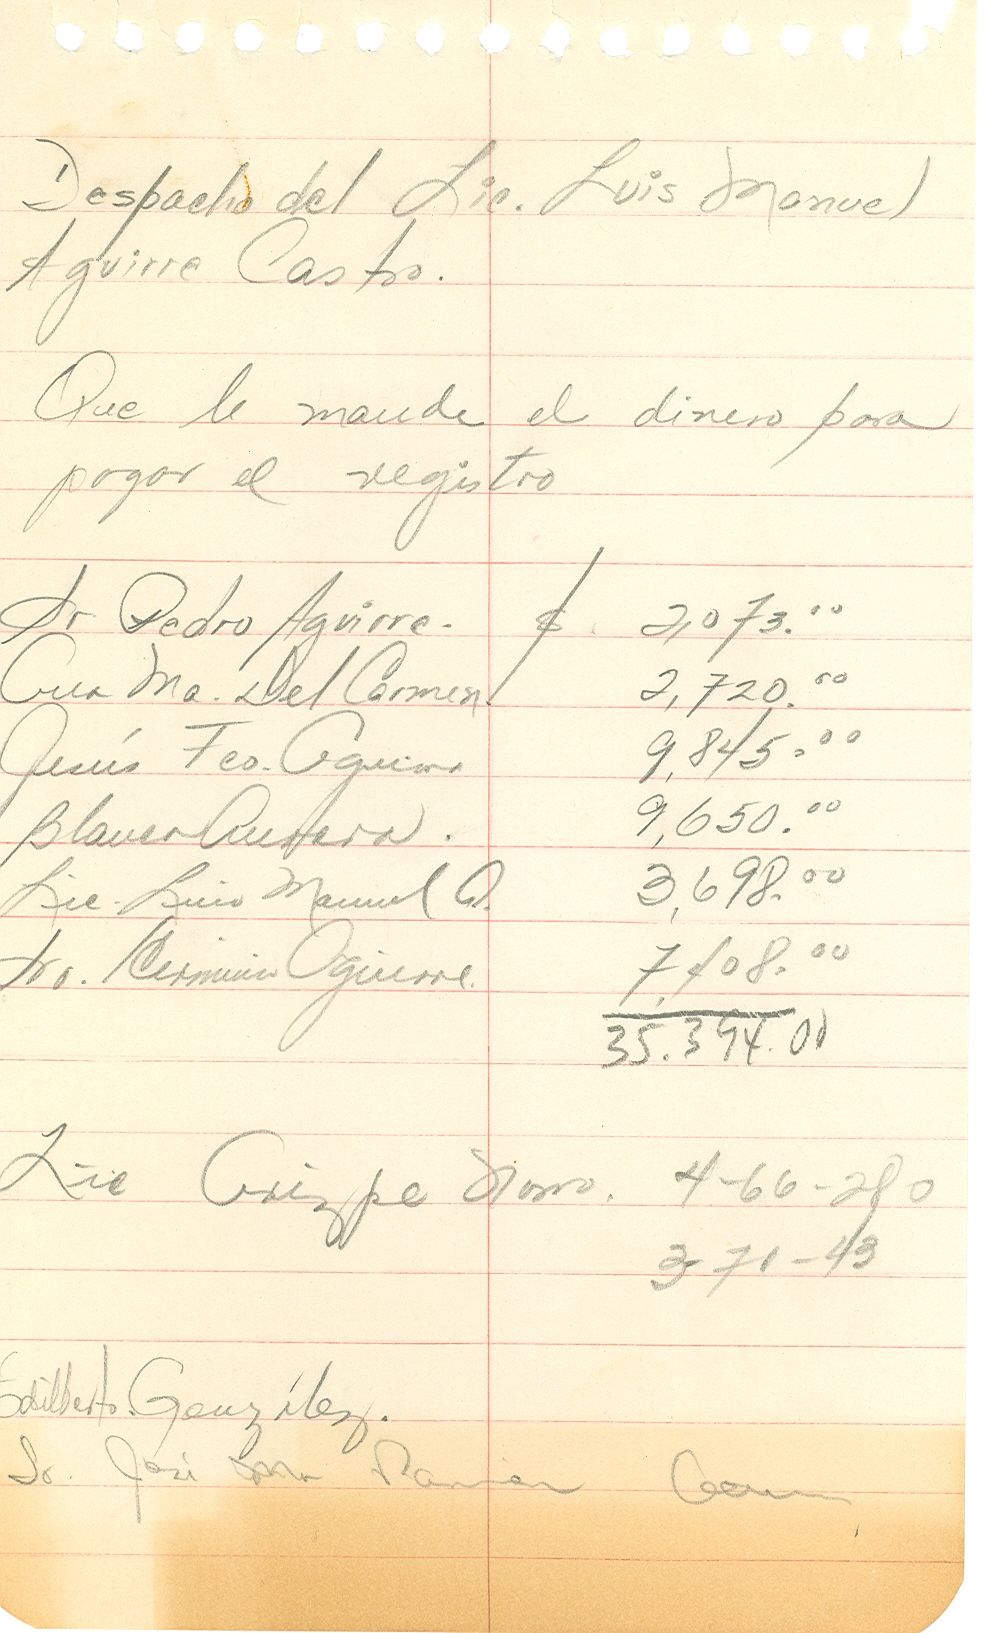 Despacho del Lic. Luis Manuel
Aguirre Castro.
Que le mande el dinero para
pagar el registro
Sr. Pedro Aguirre. $ 2,073.00
Ma. Del Carmen 2,720.00
Jesús Fco. Aguirre 9,845.00
Blanca Aurora. 9,650.00
Lic. Luis Manuel A. 3,698.00
Aguirre. 7,408.00
35.394.00
Lic 4-66-280
3-71-43
Edilberto González.
Sr. José